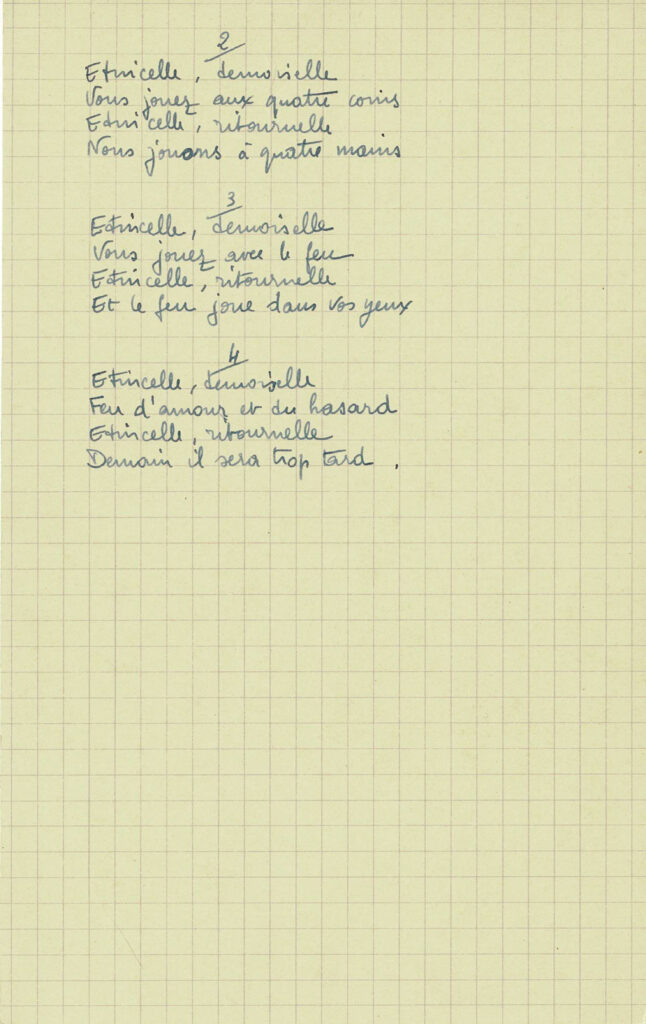 2
Etincelle, demoiselle
Vous jouez aux quatre coins
Etincelle, ritournelle
Nous jouons à quatre mains
3
Etincelle, demoiselle
Vous jouez avec le feu
Etincelle, ritournelle
Et le feu joue dans vos yeux
4
Etincelle, demoiselle
Feu d'amour et du hasard
Etincelle, ritournelle
Demain il sera trop tard.